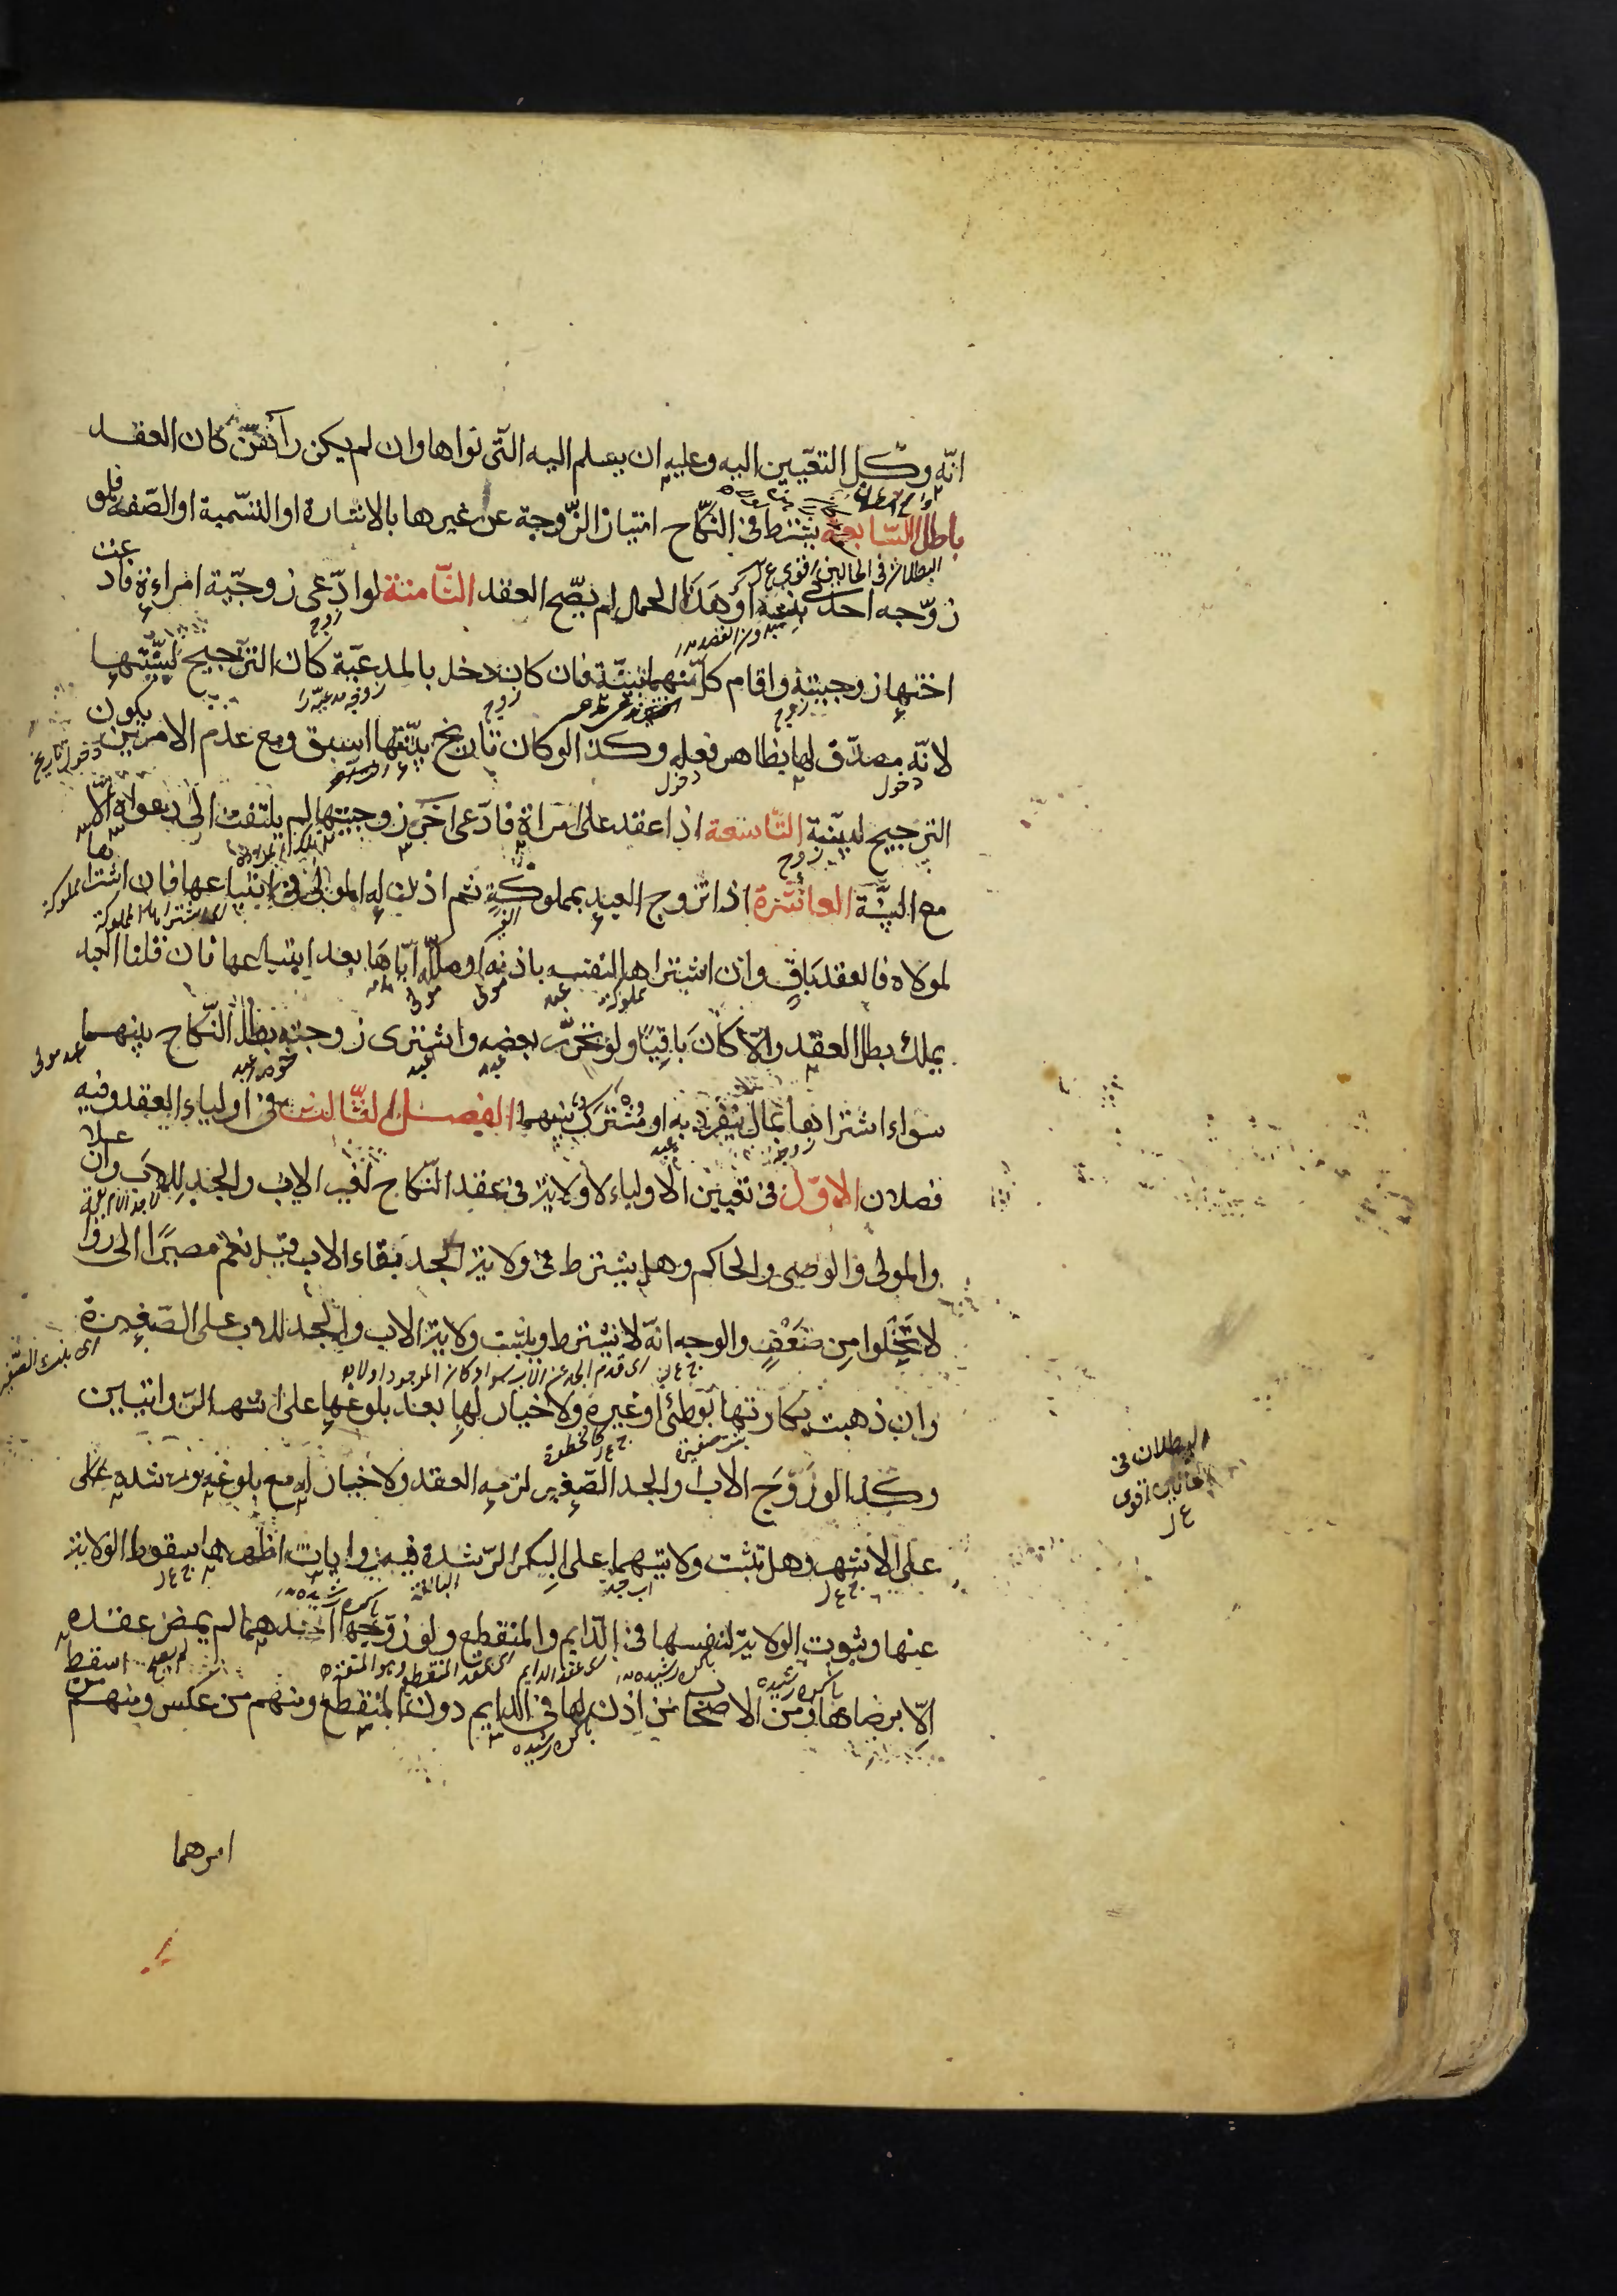 انّه وكل التعّيين اليه وعليه ان يسلم اليه التّى نواها وان لم يكن رآهنّ كان العقد
باطل السّابعة يشترط فى النكّاح امتياز الزّوجة عن غيرها بالاشارة او التسّمية او الصّفه فلو
البطلان فى الحالين اقوى ع ل
زوّجه احدى بنتيه او هَذا الحمل لم يصّح العقد الثّامنة لو ادّعى زوجيّة امراءة فادعت
زوج
اختها زوجيته واقام كلّ منهما بيّنة فان كان دخل بالمدعيّة كان الترّجيح لبيّنتها
زوج
زوج
لانّه مصدّق لها بظاهر فعله وكذا لو كان تاريخ بيّنتها اسبق ومع عدم الامرين يكون
دخول تاريخ
دخول
دخول
الترجيح لبيّنة التّاسعة اذا عقد على امراة فادّعى اخر زوجيتها لم يلتفت الى دعواه الّا
زوج
مع البيّنة العاشرة اذا تزوج العبد بمملوكةٍ ثم اذن له المولى فى ابتياعها فان اشتراها
مملوكة
الغير
اى اشترا المملوكة
لمولاه فالعقد بَاقٍ وان اشتراها لنفسه باذنه او ملكّه ايّاهَا بعد ابتياعها فان قلنا العبد
مملوكة
عبد
مولى
مولى
يملك بطل العقد والّا كانَ بَاقيًا ولو تحرّر بعضه واشترى زوجته بطل النّكاح بينهما
عبد
عبد
عبد مولى
سواء اشتراها بمال ينفرد به او مُشترك بينهما الفصل الثّالث فى اولياء العقد وفيه
زوجه
عبد
فصلان الاوّل فى تعيين الاولياء لا ولاية فى عقد النّكاح لغير الاب والجد للاب وان علا
والمولى والوصى والحاكم وهل يشترط فى ولاية الجد بقاء الاب قيل نعم مصيرًا الى روا
لا تخلوا مِن ضَعْفٍ والوجه انّه لا يشترط ويثبت ولاية الاب والجد للاب على الصّغيرة
اى بنت الصّغيرة
وان ذهبت بكارتها بوطئ او غيره ولا خيار لها بعد بلوغها على اشهر الرّوايتين
بنت صغيرة
وكذا لو زوّجَ الاب والجد الصّغير لزمه العقد ولا خيار له مع بلوغه ورشده على
على الاشهر وهل تثبت ولايتهما على البكر الرّشدة فيه روايات اظهرها سقوط الولاية
اب جد
البالغة
عنها وثبوت الولاية لنفسها فى الدّايم والمنقطع ولو زوّجها احدهما لم يمض عقده
باكره رشيده
اى عقد الدايم
اى عقد المنقطع وهو المتعة
الّا برضاها ومن الاصحاب من اذن لها فى الدايم دون المنقطع ومنهم من عكس ومنهم من اسقط
باكره رشيده
باكره رشيده
امرهما
البطلان فى
الحالين اقوى
ع ل